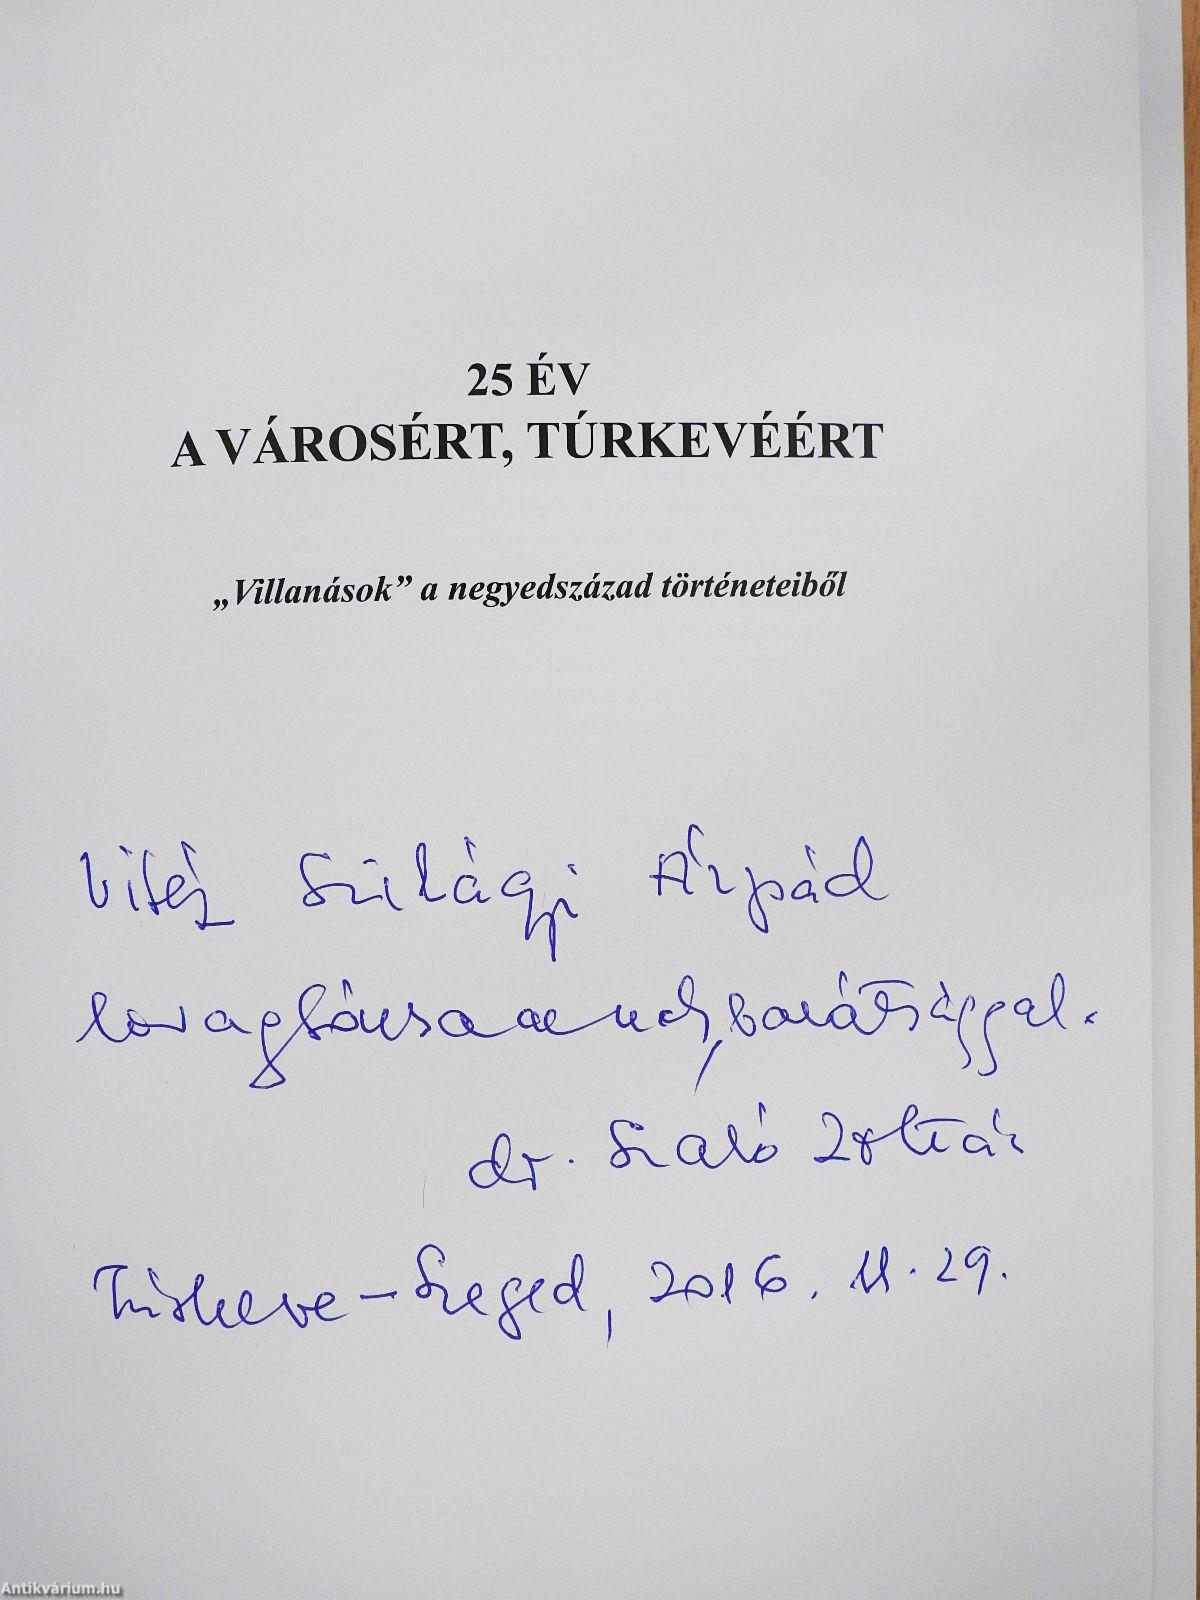 25 ÉV
A VÁROSÉRT, TÚRKEVÉÉRT
„Villanások” a negyedszázad történeteiből
Vitéz Szilágyi Árpád
lovagtársamnak, barátsággal.
dr. Szabó Zoltán
Túrkeve – Szeged, 2016. 11. 29.
Antikvárium.hu